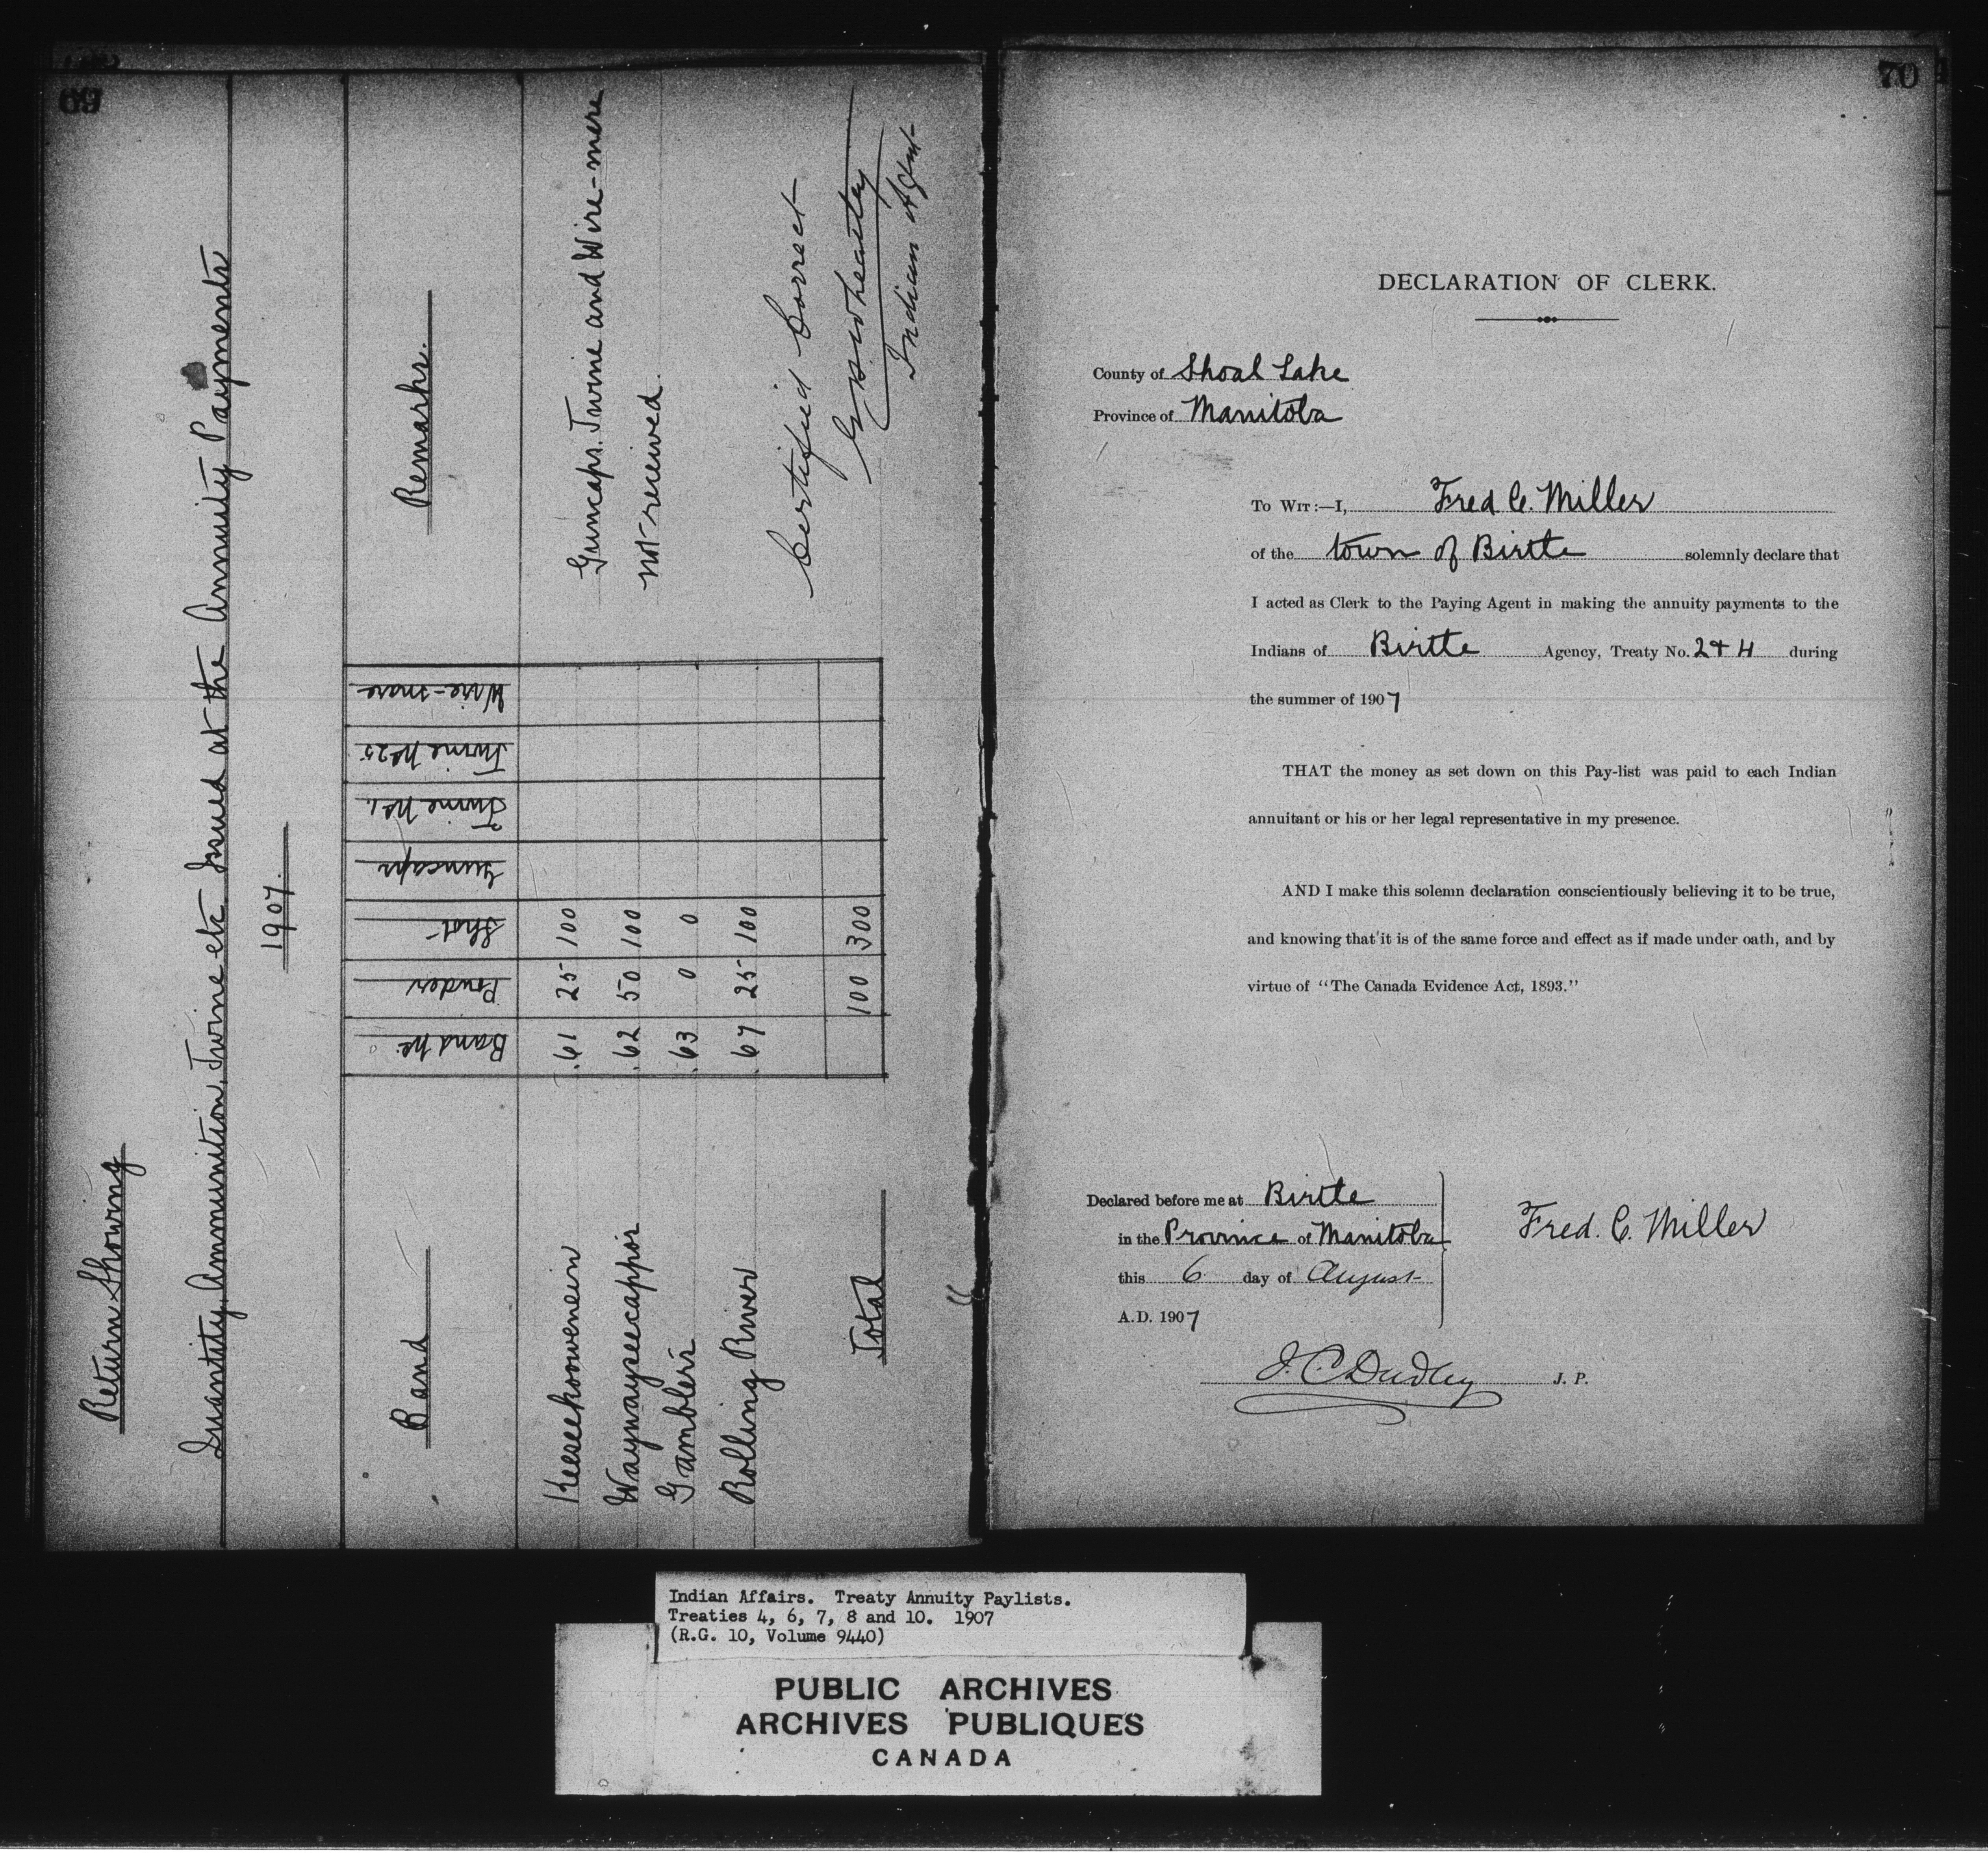 69
Return Showing
Quantity, Ammunition, Twine etc Issued at the Annuity Payments
1907.
Band Band No. Powder Shot Guncaps Twine No 1. Twine No 25 Wire-snare Remarks.
Keeseekoowenein .61 25 100 Guncaps. Twine and Wire-mere
Waywayseecappos .62 50 100 not received.
Gamblers .63 0 0
Rolling River .67 25 100
Total 100 300
Certified Correct
G H Wheatley
Indian Agent
70
DECLARATION OF CLERK.
County of Shoal Lake
Province of Manitoba
To Wit:—I, Fred C. Miller
of the town of Birtle solemnly declare that
I acted as Clerk to the Paying Agent in making the annuity payments to the
Indians of Birtle Agency, Treaty No. 2 & 4 during
the summer of 1907
THAT the money as set down on this Pay-list was paid to each Indian
annuitant or his or her legal representative in my presence.
AND I make this solemn declaration conscientiously believing it to be true,
and knowing that it is of the same force and effect as if made under oath, and by
virtue of "The Canada Evidence Act, 1893."
Declared before me at Birtle
in the Province of Manitoba
this 6 day of August
A.D. 1907
Fred. C. Miller
J. C. Dudley J. P.
Indian Affairs. Treaty Annuity Paylists.
Treaties 4, 6, 7, 8 and 10. 1907
(R.G. 10, Volume 9440)
PUBLIC ARCHIVES
ARCHIVES PUBLIQUES
CANADA